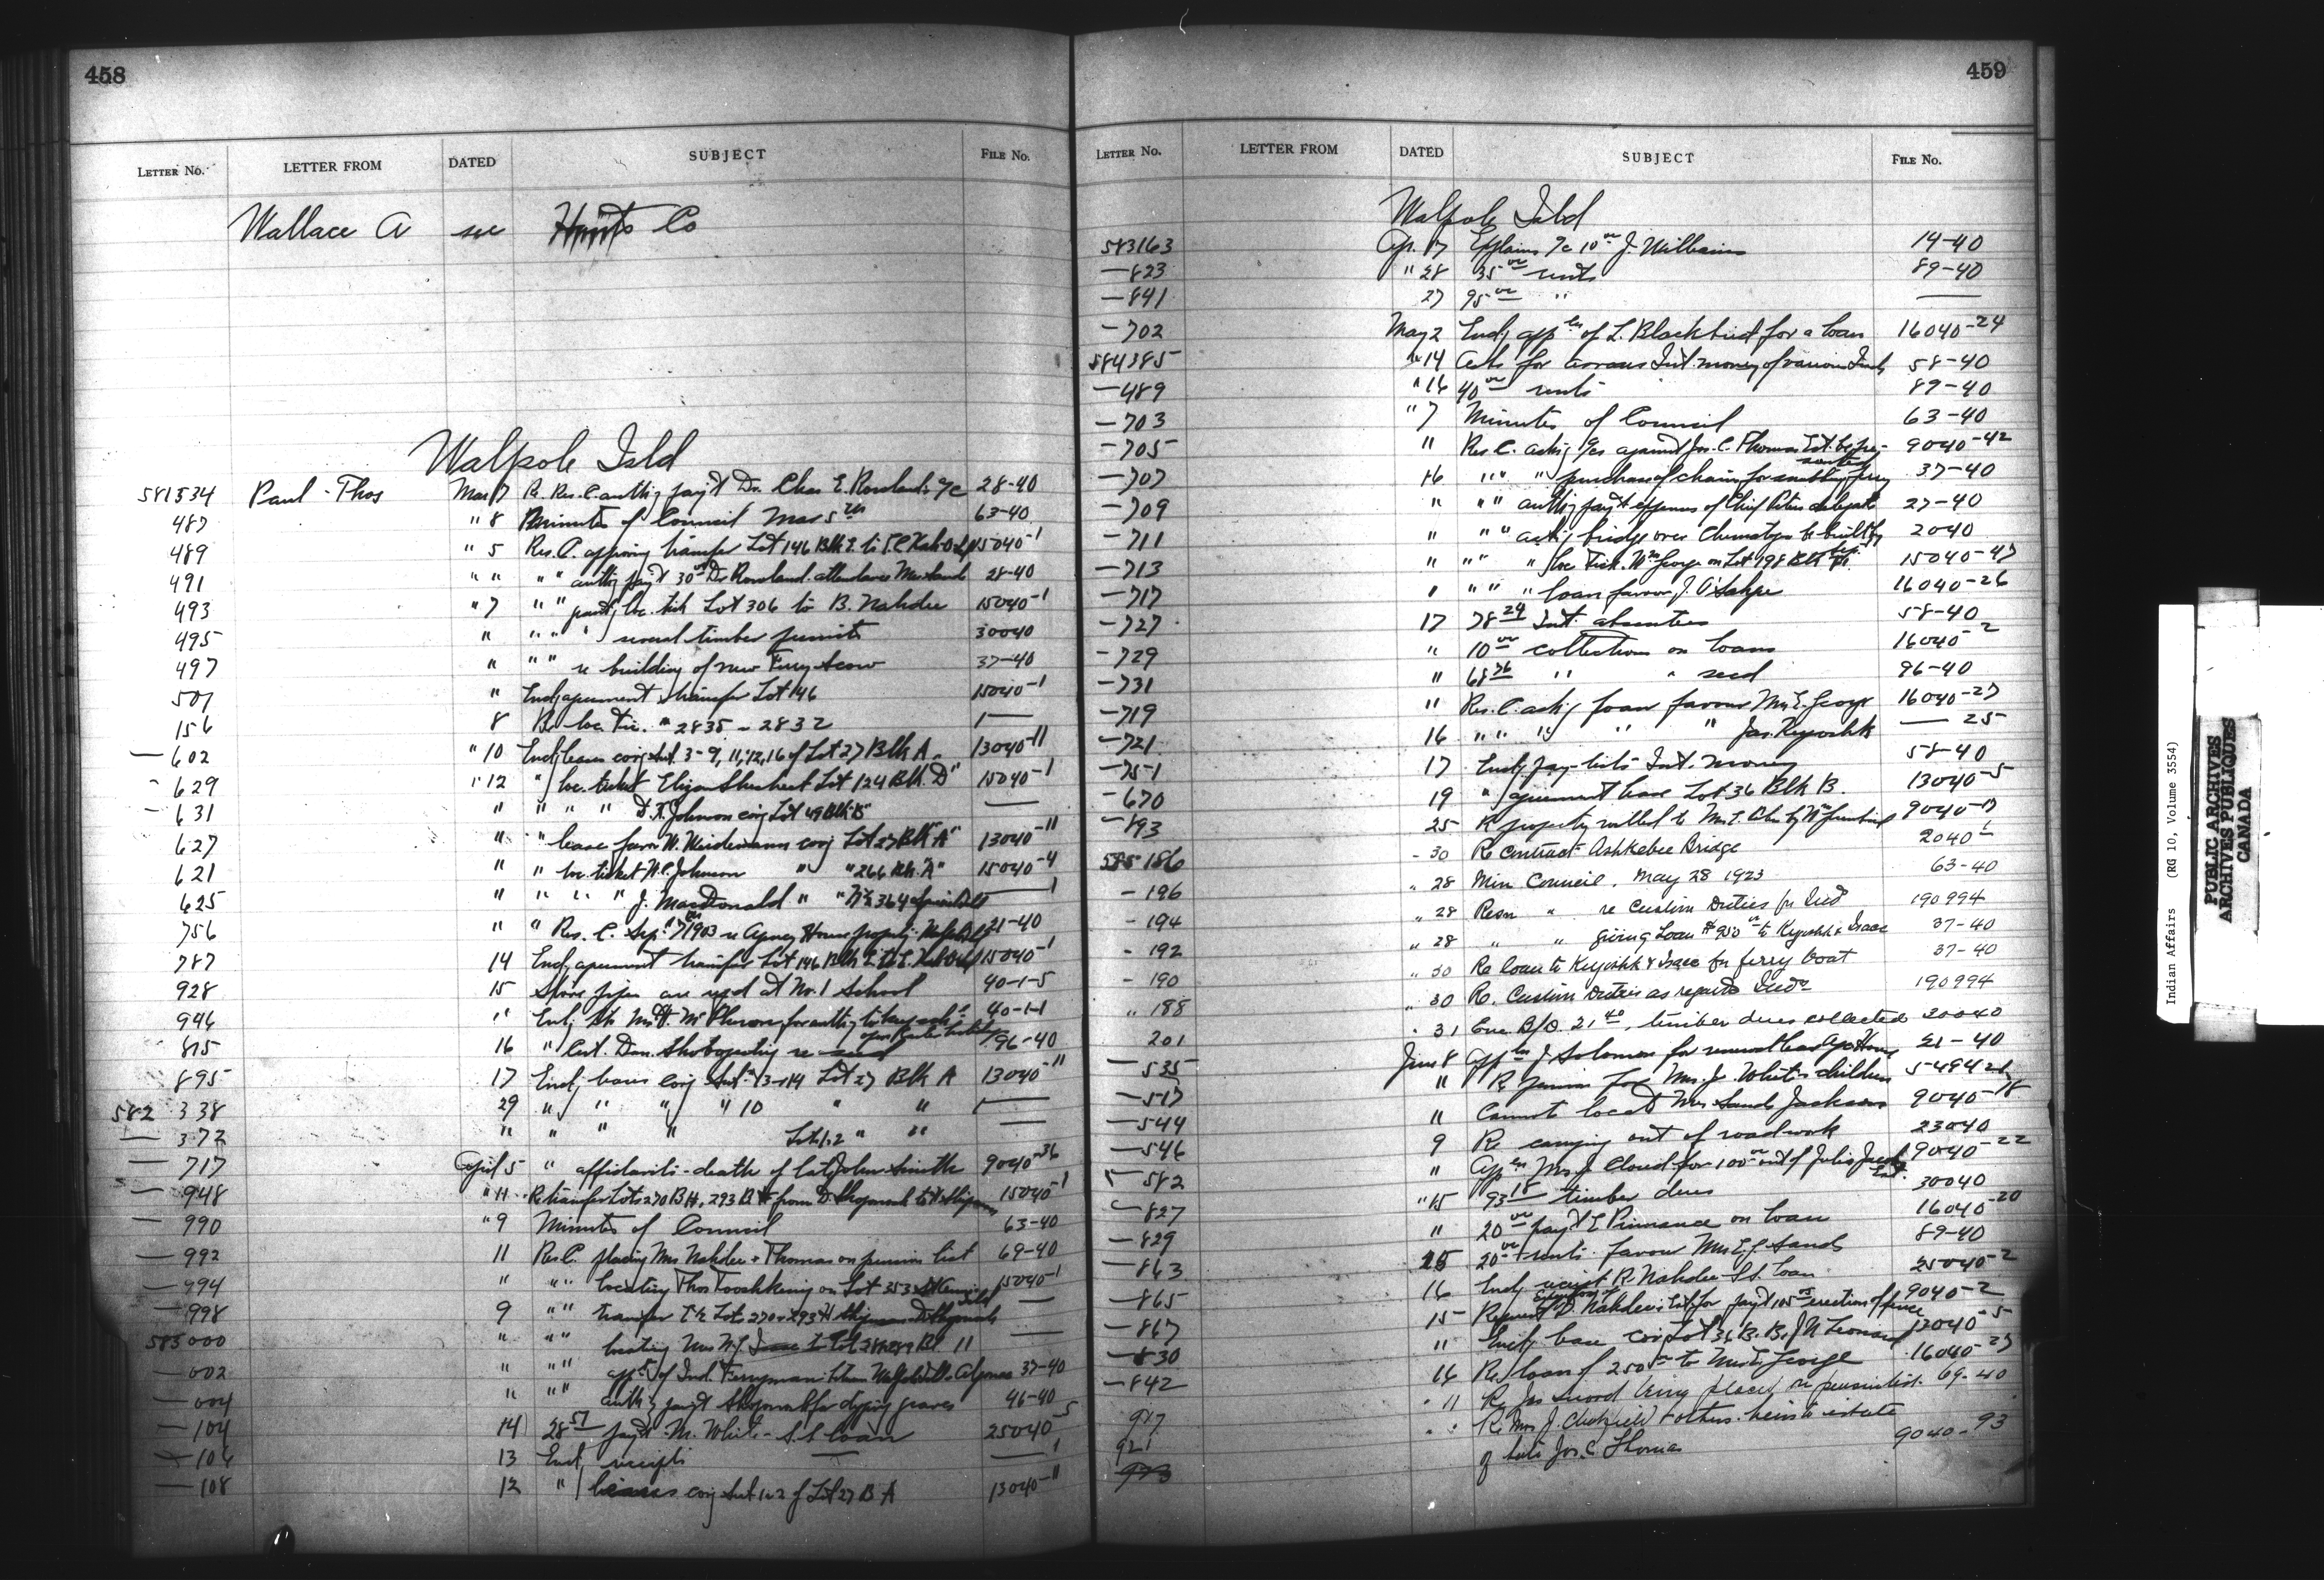 458
LETTER No. LETTER FROM DATED SUBJECT FILE No.
Wallace A see Hunts Co
Walpole Isld
581534 Paul - Thos Mar 7 Re Res. C. auth'g pay't Dr. Chas E. Rowland's a/c 28-40
487 " 8 Minutes of Council Mar 5th 63-40
489 " 5 Res. C. approving transfer Lot 146 Blk E. to 15040-1
491 " " " " auth'g pay't 30 00 Dr Rowland attendance Mrs Sands 28-40
493 " 7 " " grant'g loc. tick Lot 306 to B. Nahdee 15040-1
495 " " " " several timber permits 30040
497 " " " re building of new Ferry Scow 37-40
507 " Encl'g agreement transfer Lot 146 15040-1
156 8 Re loc Tic. # 2835 - 2832
— 602 " 10 Encl'g leases cov'g Sub. 3-9, 11, 12, 16 of Lot 27 Blk A. 13040-11
- 629 " 12 " loc. ticket Lot 124 Blk "D" 15040-1
- 631 " " " " Johnson cov'g Lot 49 Blk "B" —
627 " " lease favor W. Weidemann cov'g Lot 27 Blk "A" 13040-11
621 " " loc. ticket W.C. Johnson " " 266 Blk. "A" 15040-4
625 " " " " J. MacDonald " "
756 " " Res. C. Sep. 7th 1903 re Agency House property 21-40
787 14 Encl'g agreement transfer Lot 146 Blk E. to 15040-1
928 15 Stove pipes are req'd at No. 1 School 40-1-5
946 " Encl'g for auth'y to 40-1-1
815 16 " Cert. Dan. Shobogeezhig re seed 96-40
895 17 Encl'g leases cov'g Sub. 13-14 Lot 27 Blk A 13040-11
582 338 29 " " " " 10 " " —
— 372 " " " " Lot 1.2 " " —
— 717 April 5 " affidavits - death of late John Smith 9040-36
— 948 " 11 Re transfer Lots 270 B H, 293 B H from D. 15040-1
— 990 " 9 Minutes of Council 63-40
— 992 11 Res C. placing Mrs Nahdee + Thomas on pension list 69-40
— 994 " " " locating Thos Tooshkenig on Lot 353 15040-1
— 998 9 " " transfer Lots 270 + 293 H —
583 000 " " " locating Mrs 11 —
— 002 " " " app't of Ind. Ferryman between 37-40
— 004 " " " auth'g pay't for digging graves 46-40
— 104 14 28 57 pay't M. White - S.S. loan 25040-5
— 106 13 Encl'g receipts — —
— 108 12 " leases cov'g Sub 1 & 2 of Lot 27 B A 13040-11
459
LETTER No. LETTER FROM DATED SUBJECT FILE No.
Walpole Isld
583163 Ap. 17 Explains a/c 10 00 J. Williams 14-40
— 823 " 28 35 00 rents 89-40
— 841 27 95 00 " —
— 702 May 2 Encl'g app'cn of L. Blackbird for a loan 16040-24
584385 " 14 Asks for arrears Int. money of various Inds 58-40
— 489 " 16 40 00 rents 89-40
— 703 " 7 Minutes of Council 63-40
— 705 " Res. C. ask'g a/cs against Jos. C. Thomas Est. be pre- 9040-42
sented
— 707 16 " " " purchase of chain for ferry 37-40
— 709 " " " auth'g pay't expenses of Chief Peters delegate 27-40
— 711 " " " ask'g bridge over Chematogan be built by 2040
— 713 " " " " loc Tick. Wm George on Lot 198 Blk 15040-47
— 717 " " " " loan favour J. 16040-26
— 727 17 78 24 Int. absentees 58-40
— 729 " 10 00 collections on loans 16040-2
— 731 " 68 76 " " seed 96-40
— 719 " Res. C. ask'g loan favour Mrs E. George 16040-27
— 721 16 " " " " " Jas. Kiyoshk — 25
— 751 17 Encl'g pay-lists Int. money 58-40
— 670 19 " agreement lease Lot 36 Blk B. 13040-5
— 893 25 Re property willed to Mrs 9040-17
585186 - 30 Re Contract Ashkebee Bridge 2040-1
- 196 " 28 Min Council, May 28 1923 63-40
- 194 " 28 Resn " re Custom Duties for Ind 190994
- 192 " 28 " " giving Loan # 950 00 to Kiyoshk & Isaac 37-40
- 190 " 30 Re loan to Kiyoshk & Isaac for ferry boat 37-40
" 188 " 30 Re. Custom Duties as regards Inds 190994
201 " 31 Enc B/D. 21 40, timber dues collected 30040
— 535 June 8 App'cn J Solomon for renewal lease Agc House 21-40
— 517 " Re pension for Mrs. J. White's children
— 544 " Cannot locate Mrs Sands Jackson 9040-18
— 546 9 Re carrying out of roadwork 23040
582 " App'cn Mrs J. Cloud for 100 00 out of Julia 9040-22
— 827 " 15 93 18 timber dues 30040
— 829 " 20 00 pay't E Pinnance on loan 16040-20
— 863 15 20 00 rents favour Mrs E.J. Sands 89-40
— 865 16 Encl'g receipt R. Nahdee S.S. loan 25040-2
— 867 15 Nahdee's Est. for pay't 105 00 erection of fence 9040-2
— 830 " Encl'g lease cov'g Lot 36 B. B. J. N. Leonard 13040-5
— 842 16 Re loan of 250 00 to Mrs E. George 16040-27
917 " 11 Re Jas Sword being placed on pension list. 69-40
921 " " Re Mrs J. + others heirs to estate
973 of late Jos. C Thomas 9040-93
Indian Affairs (RG 10, Volume 3554)
PUBLIC ARCHIVES
ARCHIVES PUBLIQUES
CANADA